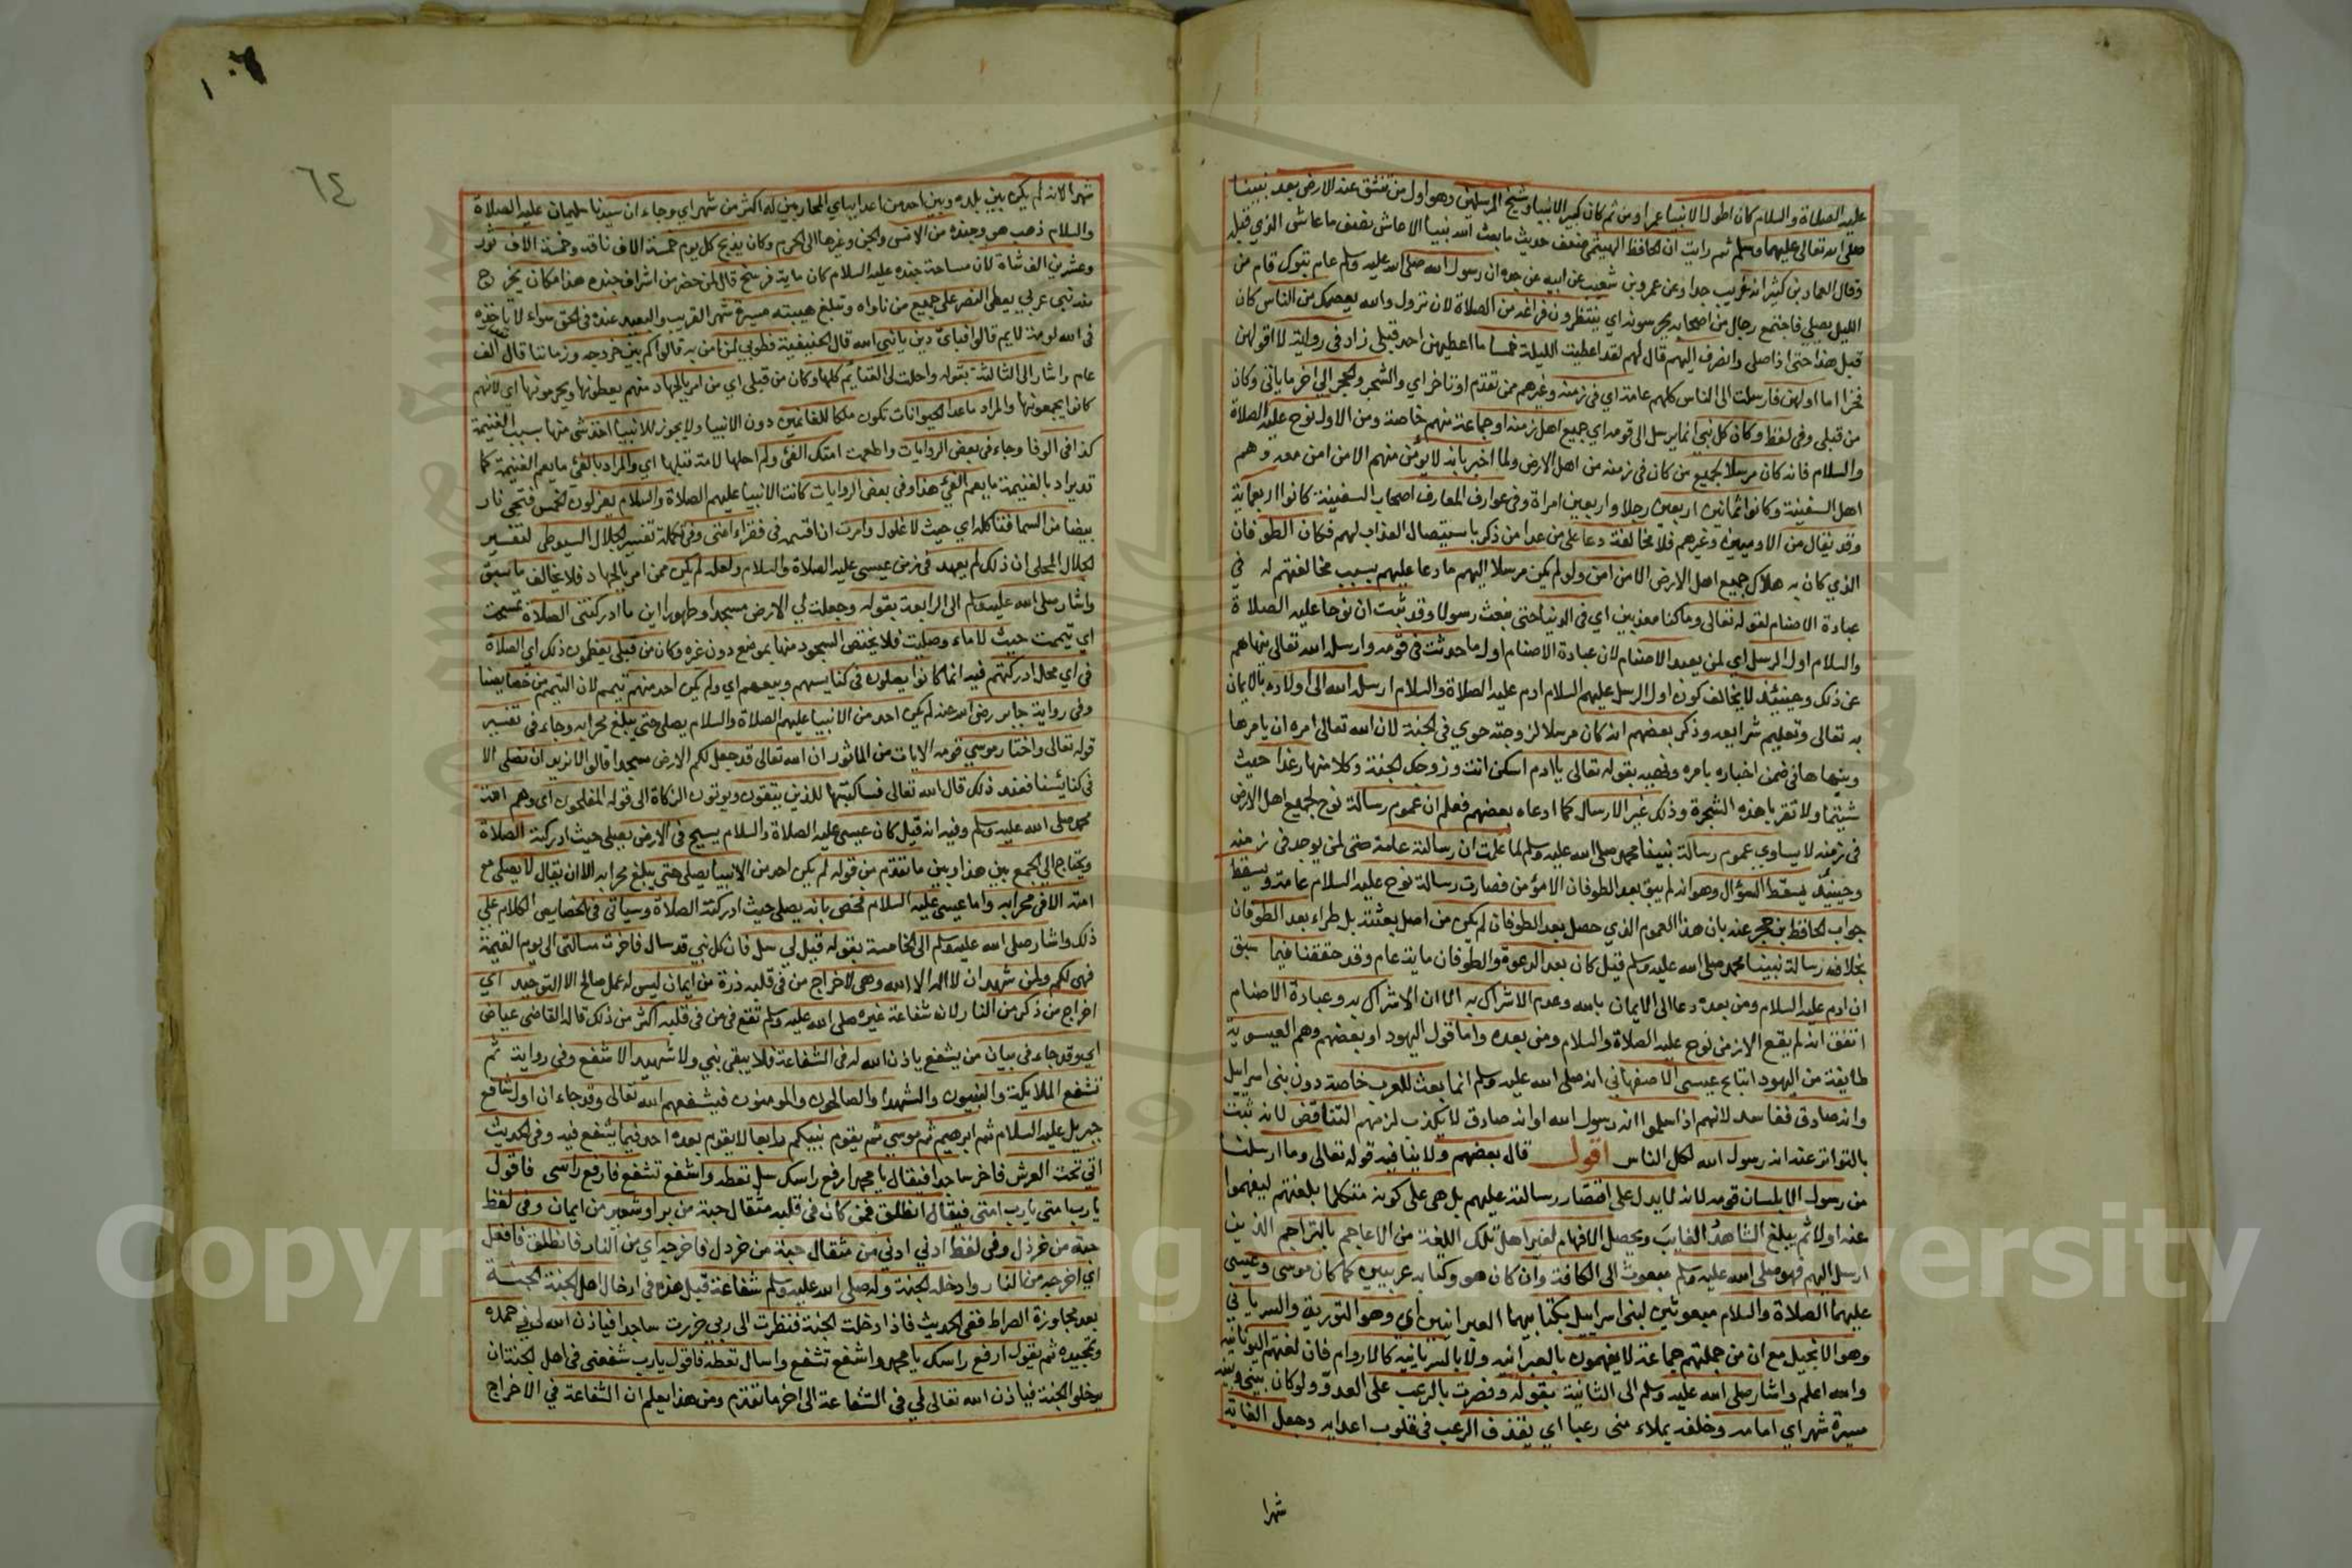 عليه الصلاة والسلام كان اطول الانبيا عمرا ومن ثم كان كبير الانبيا وشيخ المرسلين وهو اول من تنشق عنه الارض بعد نبينا
صلى الله تعالى عليهما وسلم ثم رايت ان الحافظ الهيتمى ضعف حديث ما بعث الله نبيا الا عاش نصف ما عاش الذي قبله
وقال العماد بن كثير انه غريب جدا وعن عمرو بن شعيب عن ابيه عن جده ان رسول الله صلى الله عليه وسلم عام تبوك قام من
الليل يصلي فاجتمع رجال من اصحابه يحرسونه اي ينتظرون فراغه من الصلاة لان نزول والله يعصمك من الناس كان
قبل هذا حتى اذا صلى وانصرف اليهم قال لهم لقد اعطيت الليلة خمسا ما اعطيهن احد قبلي زاد في رواية لا اقولهن
فخرا اما اولهن فارسلت الى الناس كلهم عامة اي في زمنه وغيرهم ممن تقدم او تاخر اي والشجر والحجر الي اخر ما ياتى وكان
من قبلى وفى لفظ وكان كل نبي انما يرسل الى قومه اي جميع اهل زمنه او جماعة منهم خاصة ومن الاول نوح عليه الصلاة
والسلام فانه كان مرسلا لجميع من كان فى زمنه من اهل الارض ولما اخبر بانه لا يؤمن منهم الا من امن معه وهم
اهل السفينة وكانوا ثمانين اربعين رجلا واربعين امراة وفى عوارف المعارف اصحاب السفينة كانوا اربعماية
وقد يقال من الادميين وغيرهم فلا مخالفة دعا على من عدا من ذكر باستيصال العذاب لهم فكان الطوفان
الذي كان به هلاك جميع اهل الارض الا من امن ولو لم يكن مرسلا اليهم ما دعا عليهم بسبب مخالفتهم له في
عبادة الاصنام لقوله تعالى وما كنا معذبين اي فى الدنيا حتى نبعث رسولا وقد ثبت ان نوحا عليه الصلاة
والسلام اول الرسل اي لمن يعبد الاصنام لان عبادة الاصنام اول ما حدثت فى قومه وارسله الله تعالى ينهاهم
عن ذلك وحينئذ لا يخالف كون اول الرسل عليهم السلام ادم عليه الصلاة والسلام ارسله الله الى اولاده بالايمان
به تعالى وتعليم شرايعه وذكر بعضهم انه كان مرسلا لزوجته حوي في الجنة لان الله تعالى امره ان يامرها
وينهاها في ضمن اخباره بامره ونهيه بقوله تعالى يا ادم اسكن انت وزوجك الجنة وكلا منها رغدا حيث
شيتما ولا تقربا هذه الشجرة وذلك غير الارسال كما ادعاه بعضهم فعلم ان عموم رسالة نوح لجميع اهل الارض
فى زمنه لا يساوي عموم رسالة نبينا محمد صلى الله عليه وسلم لما علمت ان رسالته عامة حتى لمن يوجد فى زمنه
وحينئذ يسقط السؤال وهو انه لم يبق بعد الطوفان الا مؤمن فصارت رسالة نوح عليه السلام عامة ويسقط
جواب الحافظ بن حجر عنه بان هذا العموم الذي حصل بعد الطوفان لم يكن من اصل بعثته بل طراء بعد الطوفان
بخلاف رسالة نبينا محمد صلى الله عليه وسلم قيل كان بعد الدعوة والطوفان ماية عام وقد حققنا فيما سبق
ان ادم عليه السلام ومن بعده دعا الى الايمان بالله وعدم الاشراك به الا ان الاشراك به وعبادة الاصنام
اتفق انه لم يقع الا زمن نوح عليه الصلاة والسلام ومن بعده واما قول اليهود او بعضهم وهم العيسوية
طايفة من اليهود اتباع عيسى الاصفهاني انه صلى الله عليه وسلم انما بعث للعرب خاصة دون بنى اسرايل
وانه صادق ففاسد لانهم اذا سلموا انه رسول الله او انه صادق لا يكذب لزمهم التناقض لانه ثبت
بالتواتر عنه انه رسول الله لكل الناس اقول قال بعضهم ولا ينافيه قوله تعالى وما ارسلنا
من رسول الا بلسان قومه لانه لا يدل على اقتصار رسالته عليهم بل هى على كونه متكلما بلغتهم ليفهموا
عنه اولا ثم يبلغ الشاهد الغايب ويحصل الافهام لغير اهل تلك اللغة من الاعاجم بالتراجم الذين
ارسل اليهم فهو صلى الله عليه وسلم مبعوث الى الكافة وان كان هو وكتابه عربيين كما كان موسى وعيسى
عليهما الصلاة والسلام مبعوثين لبنى اسراييل بكتابيهما العبرانيين اي وهو التورية والسرياني
وهو الانجيل مع ان من جملتهم جماعة لا يفهمون بالعبرانيه ولا بالسريانيه كالاروام فان لغتهم اليونانيه
والله اعلم واشار صلى الله عليه وسلم الى الثانية بقوله ونصرت بالرعب على العدو ولو كان بينى وبينه
مسيرة شهر اي امامه وخلفه يملاء منى رعبا اي يقذف الرعب فى قلوب اعدايه وجعل الغاية
شهرا
١٠٦
٦٤
شهرا لانه لم يكن بين بلده وبين احد من اعدايه اي المحاربين له اكثر من شهر اي وجاء ان سيدنا سليمان عليه الصلاة
والسلام ذهب هو وجنده من الانس والجن وغيرها الى الحرم وكان يذبح كل يوم خمسة الاف ناقة وخمسة الاف ثور
وعشرين الف شاة لان مساحة جنده عليه السلام كان ماية فرسخ قال لمن حضر من اشراف جنده هذا مكان يخرج
منه نبى عربي يعطى النصر على جميع من ناواه وتبلغ هيبته مسيرة شهر القريب والبعيد عنده فى الحق سواء لا ياخذه
فى الله لومة لايم قالوا فباى دين يا نبي الله قال الحنيفية فطوبي لمن امن به قالوا كم بين خروجه وزماننا قال الف
عام واشار الى الثالثة بقوله واحلت لى الغنايم كلها وكان من قبلى اي من امر بالجهاد منهم يعطونها ويحرمونها اي لانهم
كانوا يجمعونها والمراد ما عدا الحيوانات تكون ملكا للغانمين دون الانبيا ولا يجوز للانبيا اخذ شى منها بسبب الغنيمة
كذا فى الوفا وجاء فى بعض الروايات واطعمت امتك الفئ ولم احلها لامة قبلها اي والمراد بالفئ ما يعم الغنيمة كما
قد يراد بالغنيمة ما يعم الفئ هذا وفى بعض الروايات كانت الانبيا عليهم الصلاة والسلام يعزلون الخمس فتجى نار
بيضا من السما فتاكله اي حيث لا غلول وامرت ان اقسمه فى فقراء امتى وفى تكملة تفسير الجلال السيوطى لتفسير
الجلال المحلى ان ذلك لم يعهد فى زمن عيسى عليه الصلاة والسلام ولعله لم يكن ممن امر بالجهاد فلا يخالف ما سبق
واشار صلى الله عليه وسلم الى الرابعة بقوله وجعلت لي الارض مسجدا وطهورا اين ما ادركتنى الصلاة تمسحت
اي تيممت حيث لا ماء وصليت فلا يختص السجود منها بموضع دون غره وكان من قبلى يعظمون ذلك اي الصلاة
فى اي محل ادركتهم فيه انما كانوا يصلون فى كنايسهم وبيعهم اي ولم يكن احد منهم يتيمم لان التيمم من خصايصنا
وفى رواية جابر رضى الله عنه لم يكن احد من الانبيا عليهم الصلاة والسلام يصلى حتى يبلغ محرابه وجاء فى تفسير
قوله تعالى واختار موسي قومه الايات من الماثور ان الله تعالى قد جعل لكم الارض مسجدا قالوا لا نريد ان نصلى الا
فى كنائسنا فعند ذلك قال الله تعالى فساكتبها للذين يتقون ويوتون الزكاة الى قوله المفلحون اي وهم امة
محمد صلى الله عليه وسلم وفيه انه قيل كان عيسى عليه الصلاة والسلام يسيح فى الارض يصلى حيث ادركته الصلاة
ويحتاج الي الجمع بين هذا وبين ما تقدم من قوله لم يكن احد من الانبيا يصلى حتى يبلغ محرابه الا ان يقال لا يصلى مع
امته الا فى محرابه واما عيسى عليه السلام فخص بانه يصلى حيث ادركته الصلاة وسياتى فى الخصايص الكلام علي
ذلك واشار صلى الله عليه وسلم الى الخامسة بقوله قيل لي سل فان كل نبي قد سال فاخرت مسالتى الى يوم القيمة
فهى لكم ولمن شهد ان لا اله الا الله وهى لاخراج من فى قلبه ذرة من ايمان ليس له عمل صالح الا التوحيد اي
اخراج من ذكر من النار لان شفاعة غيره صلى الله عليه وسلم تقع فى من فى قلبه اكثر من ذلك قاله القاضى عياض
اي وقد جاء فى بيان من يشفع ياذن الله له فى الشفاعة فلا يبقى نبي ولا شهيد الا شفع وفى رواية ثم
تشفع الملايكة والنبيون والشهدا والصالحون والمومنون فيشفعهم الله تعالى وقد جاء ان اول شافع
جبريل عليه السلام ثم ابرهيم ثم موسي ثم يقوم نبيكم رابعا لا يقوم بعده احد فيما يشفع فيه وفى الحديث
اتي تحت العرش فاخر ساجدا فيقال يا محمد ارفع راسك سل تعطه واشفع تشفع فارفع راسى فاقول
يا رب امتى يا رب امتى فيقال انطلق فمن كان فى قلبه مثقال حبة من بر او شعير من ايمان وفى لفظ
حبة من خرذل وفى لفظ ادني ادني من مثقال حبة من خردل فاخرجه اي من النار فانطلق فافعل
اي اخرجه من النار وادخله الجنة وله صلى الله عليه وسلم شفاعة قبل هذه فى ادخال اهل الجنة الجنة
بعد مجاوزة الصراط ففى الحديث فاذا دخلت الجنة فنظرت الى ربي خررت ساجدا فياذن الله لى في حمده
وتمجيده ثم يقول ارفع راسك يا محمد واشفع تشفع واسال تعطه فاقول يا رب شفعنى فى اهل الجنة ان
يدخلوا الجنة فياذن الله تعالى لي فى الشفاعة الى اخر ما تقدم ومن هذا يعلم ان الشفاعة في الاخراج
Copyright © King Saud University